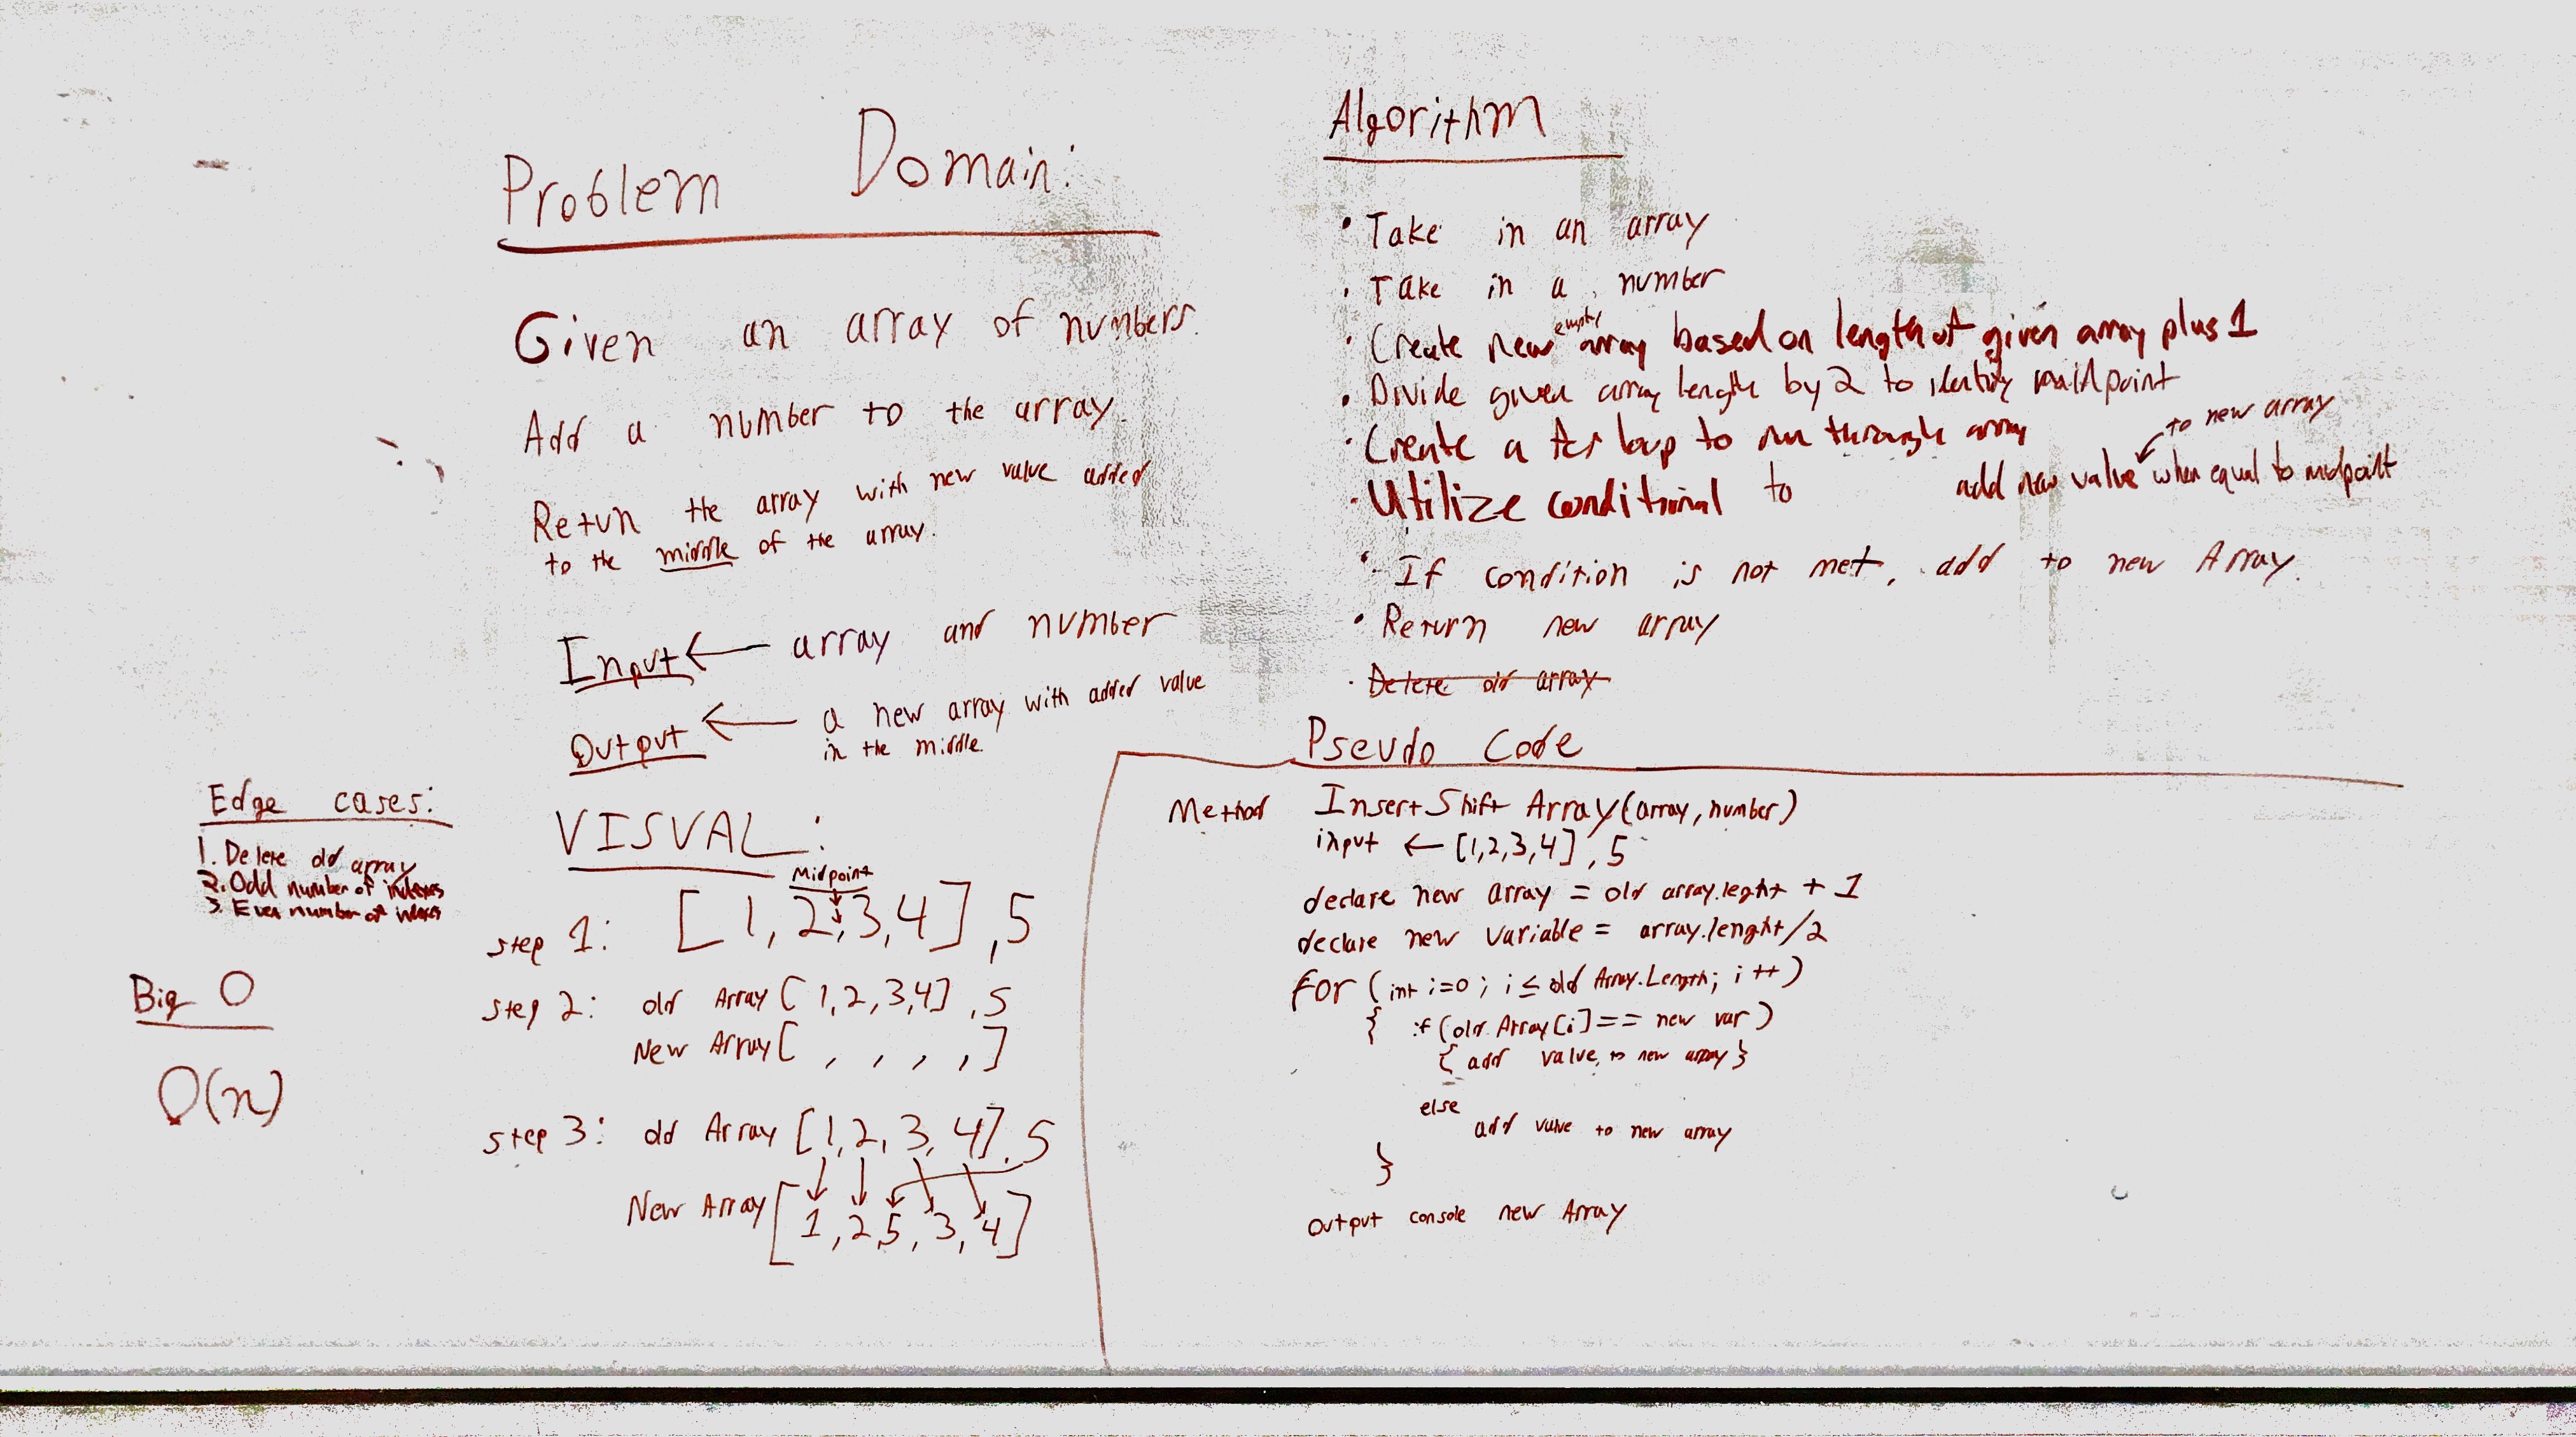 Problem Domain:
Given an array of numbers.
Add a number to the array.
Retun the array with new value added
to the middle of the array.
Input ← array and number
Output ← a new array with added value
in the middle.
Edge cases:
1. Delete old array
2. Odd number of indexes
3. Even number of indexes
Big O
O(n)
VISUAL:
Midpoint
step 1: [1, 2, 3, 4], 5
step 2: old Array [1, 2, 3, 4], 5
New Array [ , , , , ]
step 3: old Array [1, 2, 3, 4], 5
New Array [1, 2, 5, 3, 4]
Algorithm
• Take in an array
• Take in a number
• Create new empty array based on length of given array plus 1
• Divide given array length by 2 to identify midpoint
• Create a for loop to run through array
• Utilize conditional to add new value when equal to midpoint
to new array
• If condition is not met, add to new Array.
• Return new array
• Delete old array
Pseudo Code
Method InsertShift Array(array, number)
input ← [1,2,3,4], 5
declare new array = old array.leght + 1
declare new variable = array.lenght/2
for (int i=0; i ≤ old Array.Length; i++)
{ if (old Array[i] == new var)
{ add value to new array }
else
add value to new array
}
Output console new Array